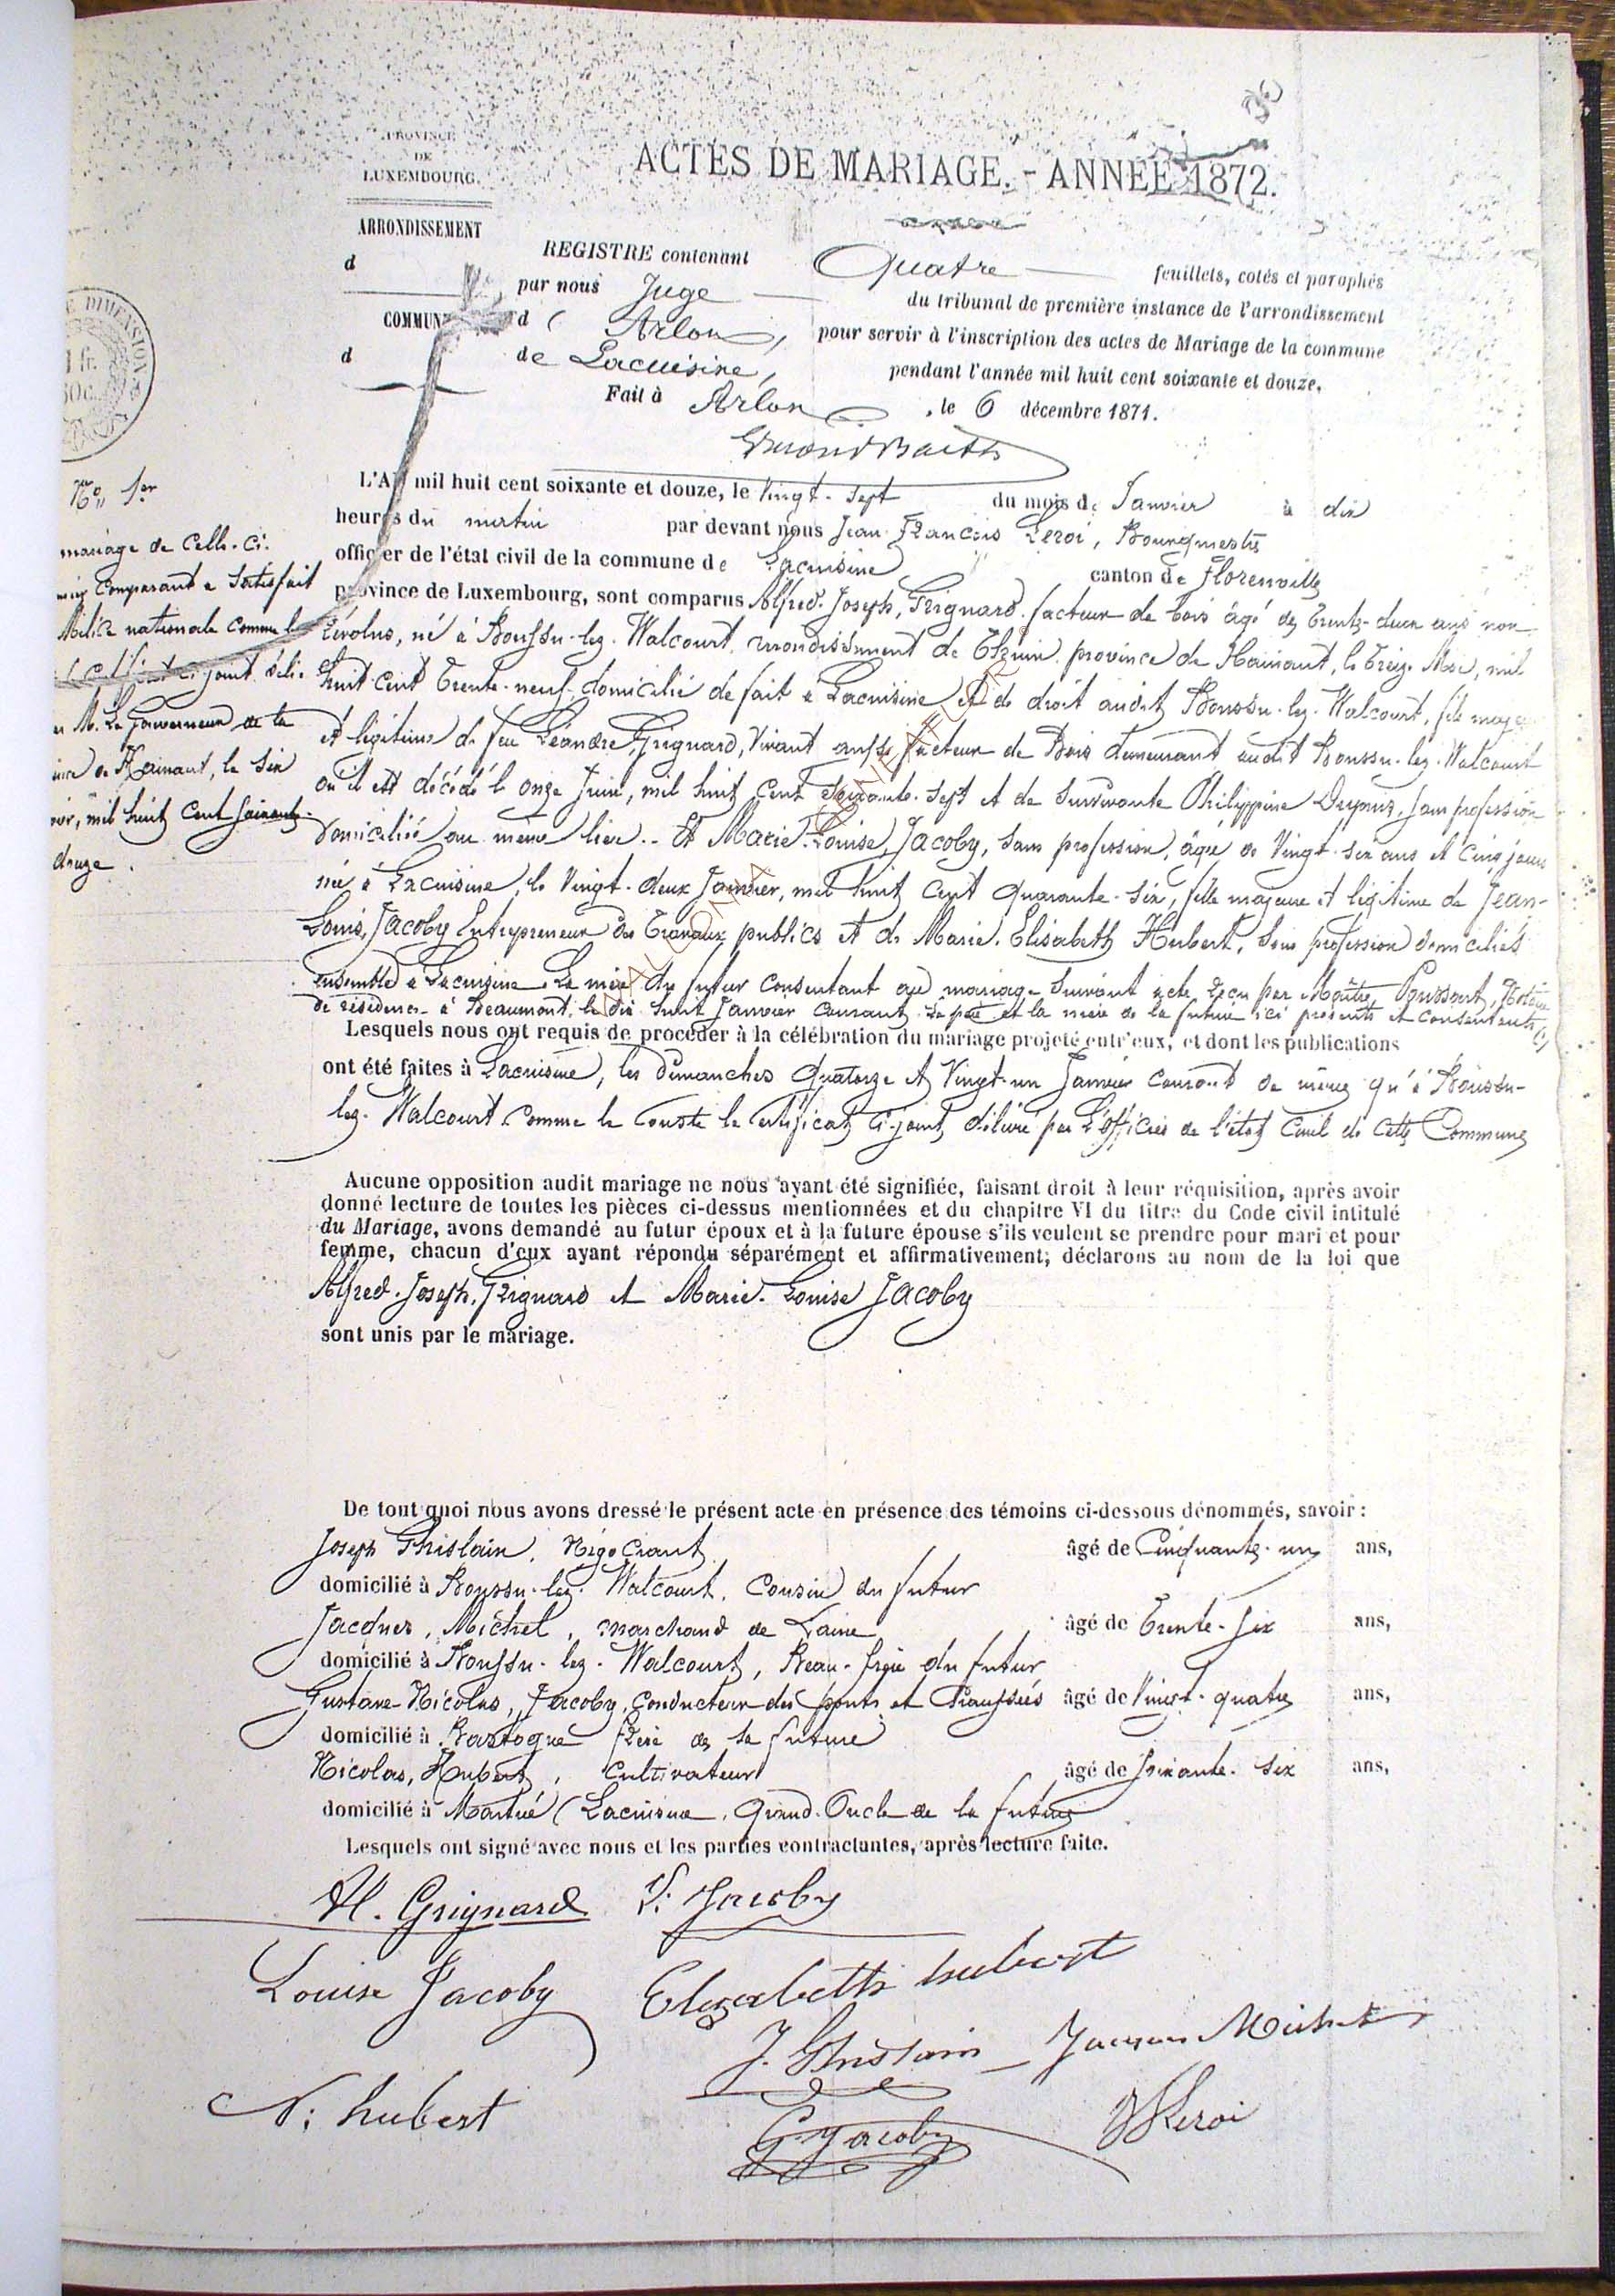 PROVINCE
DE
LUXEMBOURG.
ACTES DE MARIAGE. - ANNÉE 1872.
ARRONDISSEMENT
d
COMMUNE
d
REGISTRE contenant Quatre feuillets, cotés et paraphés
par nous Juge du tribunal de première instance de l'arrondissement
d Arlon, pour servir à l'inscription des actes de Mariage de la commune
de Lacuisine, pendant l'année mil huit cent soixante et douze.
Fait à Arlon, le 6 décembre 1871.
E DIMENSION
1 fr.
50c.
No 1er
mariage de Celle-ci.
Comparant a Satisfait
Milice nationale comme le
certificat ci joint déli-
M. Le Gouverneur de la
de Hainaut, le Six
mil huit Cent Soixante-
douze.
L'An mil huit cent soixante et douze, le Vingt-Sept du mois de Janvier à dix
heures du matin par devant nous Jean François Leroi, Bourgmestre
officier de l'état civil de la commune de Lacuisine canton de Florenville
province de Luxembourg, sont comparus Alfred-Joseph, Grignard, facteur de bois âgé de trente-deux ans non
révolus, né à Boussu-lez-Walcourt, arrondissement de Thuin, province de Hainaut, le treize Mai, mil
huit cent trente-neuf, domicilié de fait à Lacuisine et de droit audit Boussu-lez-Walcourt, fils majeur
et légitime de feu Léandre, Grignard, Vivant aussi facteur de Bois demeurant audit Boussu-lez-Walcourt
où il est décédé le onze Juin, mil huit cent Soixante-Sept et de Survivante Philippine Dupuis, Sans profession
domiciliée au même lieu. - Et Marie-Louise, Jacoby, Sans profession, âgée de Vingt-Six ans et Cinq jours
née à Lacuisine, le Vingt-deux Janvier, mil huit cent quarante-six, fille majeure et légitime de Jean-
Louis, Jacoby Entrepreneur des travaux publics et de Marie-Elisabeth Hubert, Sans profession domiciliés
ensemble à Lacuisine. La mère du futur Consentant au mariage Suivant acte reçu par Maître Notaire
de résidence à Beaumont, le dix huit Janvier Courant. Le père et la mère de la future ici présents et consentants
Lesquels nous ont requis de procéder à la célébration du mariage projeté entr'eux, et dont les publications
ont été faites à Lacuisine, les Dimanches Quatorze et Vingt-un Janvier Courant de même qu'à Boussu-
lez-Walcourt Comme le Conste le certificat ci-joint, délivré par L'officier de l'état Civil de Cette Commune
Aucune opposition audit mariage ne nous ayant été signifiée, faisant droit à leur réquisition, après avoir
donné lecture de toutes les pièces ci-dessus mentionnées et du chapitre VI du titre du Code civil intitulé
du Mariage, avons demandé au futur époux et à la future épouse s'ils veulent se prendre pour mari et pour
femme, chacun d'eux ayant répondu séparément et affirmativement; déclarons au nom de la loi que
Alfred-Joseph, Grignard et Marie-Louise Jacoby
sont unis par le mariage.
De tout quoi nous avons dressé le présent acte en présence des témoins ci-dessous dénommés, savoir :
Joseph Ghislain, Négociant âgé de Cinquante-un ans,
domicilié à Boussu-lez-Walcourt, Cousin du futur
Jacques, Michel, marchand de Laine âgé de Trente-Six ans,
domicilié à Boussu-lez-Walcourt, Beau-frère du futur
Gustave-Nicolas, Jacoby, Conducteur des ponts et Chaussées âgé de Vingt-quatre ans,
domicilié à Bastogne frère de la future
Nicolas, Hubert, Cultivateur âgé de Soixante-Six ans,
domicilié à Martué (Lacuisine, Grand-Oncle de la future
Lesquels ont signé avec nous et les parties contractantes, après lecture faite.
Al. Grignard L. Jacoby
Louise Jacoby Elisabeth hubert
J. Ghislain Jacques Michel
N. hubert G. Jacoby Leroi